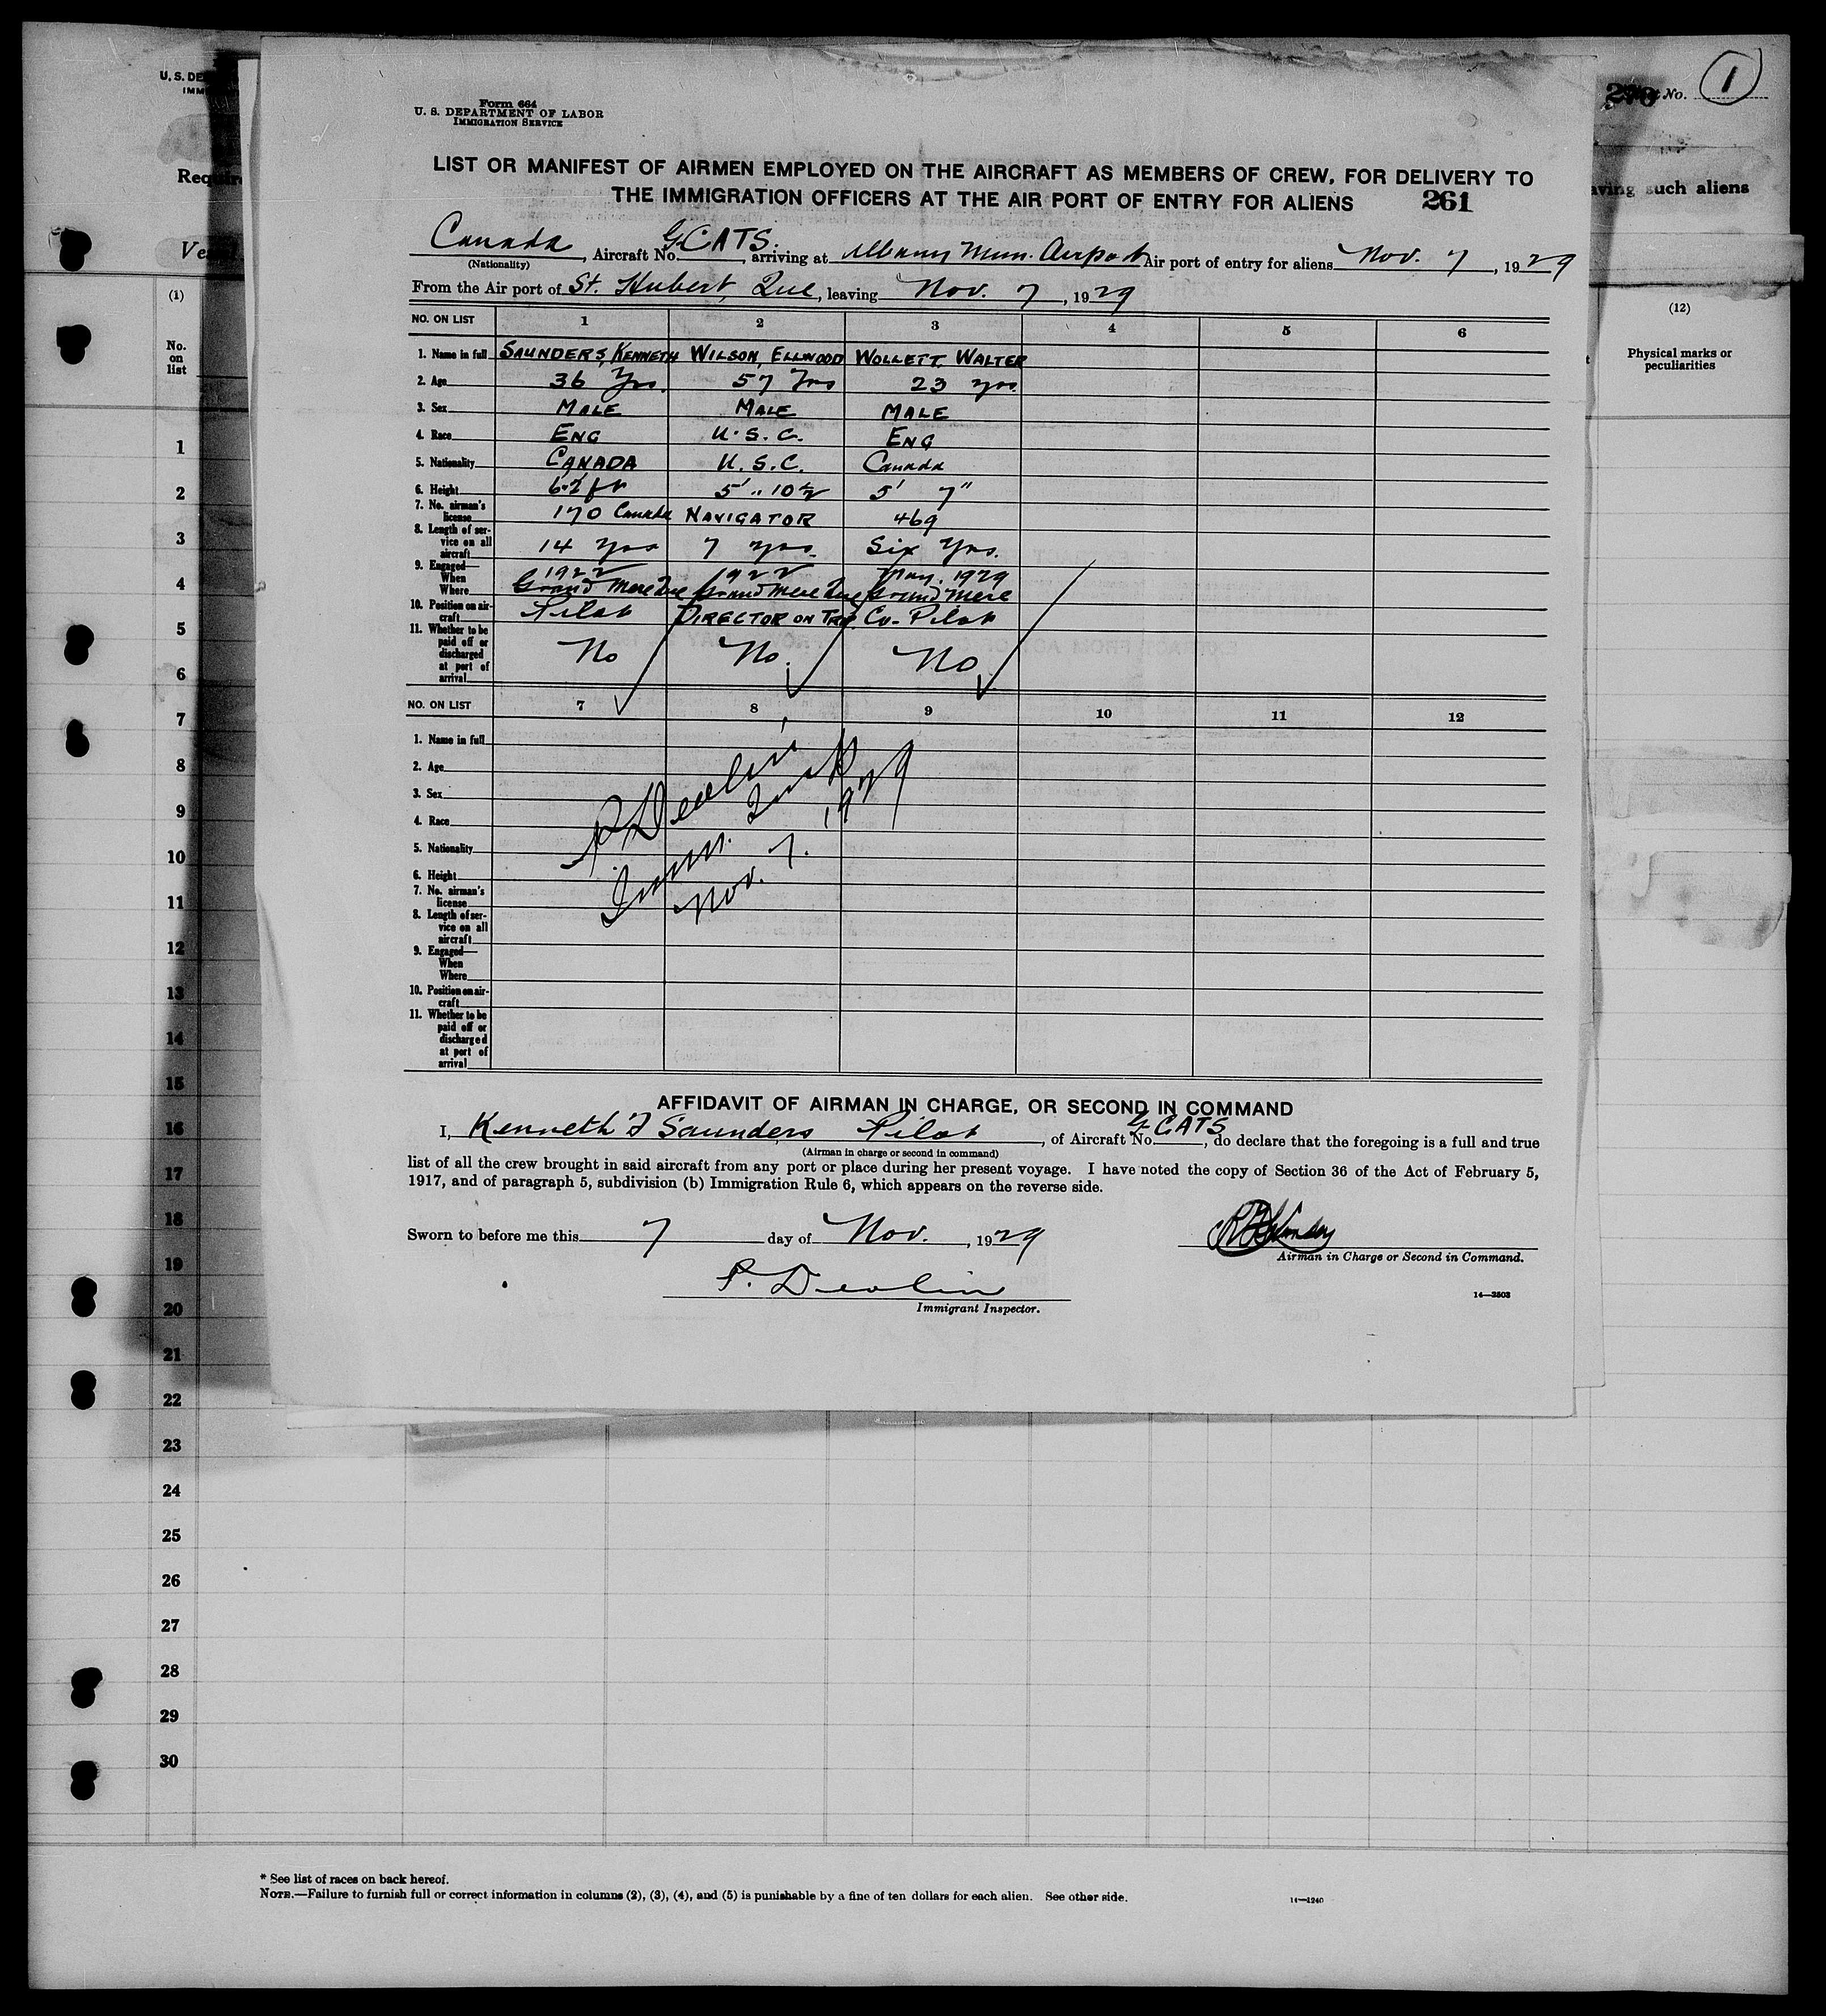 Form 664
U. S. DEPARTMENT OF LABOR
IMMIGRATION SERVICE
1
LIST OR MANIFEST OF AIRMEN EMPLOYED ON THE AIRCRAFT AS MEMBERS OF CREW, FOR DELIVERY TO
THE IMMIGRATION OFFICERS AT THE AIR PORT OF ENTRY FOR ALIENS 261
Canada, Aircraft No. G.CATS., arriving at Albany Mun. Airport Air port of entry for aliens Nov. 7, 1929
(Nationality)
From the Air port of St. Hubert, Que, leaving Nov. 7, 1929
NO. ON LIST 1 2 3 4 5 6
1. Name in full SAUNDERS, KENNETH WILSON, ELLWOOD WOLLETT WALTER
2. Age 36 Yrs. 57 Yrs 23 yrs.
3. Sex MALE MALE MALE
4. Race ENG U.S.C. ENG
5. Nationality CANADA U.S.C. Canada
6. Height 5' 10½ 5' 7"
7. No. airman's license 170 Canada NAVIGATOR 469
8. Length of service on all aircraft 14 yrs 7 yrs. Six Yrs.
9. Engaged—
When 1922 1922 May. 1929
Where Grand Mere Que Grand Mere Que Grand Mere
10. Position on aircraft Pilot DIRECTOR ON TRIP. Co-Pilot
11. Whether to be paid off or discharged at port of arrival No No. No
NO. ON LIST 7 8 9 10 11 12
1. Name in full
2. Age
3. Sex
4. Race
5. Nationality
6. Height
7. No. airman's license
8. Length of service on all aircraft
9. Engaged—
When
Where
10. Position on aircraft
11. Whether to be paid off or discharged at port of arrival
P Devlin
Imm. Insp
Nov. 7. 1929
AFFIDAVIT OF AIRMAN IN CHARGE, OR SECOND IN COMMAND
I, Kenneth F Saunders Pilot, of Aircraft No. G.CATS, do declare that the foregoing is a full and true
(Airman in charge or second in command)
list of all the crew brought in said aircraft from any port or place during her present voyage. I have noted the copy of Section 36 of the Act of February 5,
1917, and of paragraph 5, subdivision (b) Immigration Rule 6, which appears on the reverse side.
Sworn to before me this 7 day of Nov., 1929
Airman in Charge or Second in Command.
P. Devlin
Immigrant Inspector.
14—2503
U. S. DE
IMM
No.
aving such aliens
(1)
No.
on
list
(12)
Physical marks or
peculiarities
1
2
3
4
5
6
7
8
9
10
11
12
13
14
15
16
17
18
19
20
21
22
23
24
25
26
27
28
29
30
* See list of races on back hereof.
NOTE.—Failure to furnish full or correct information in columns (2), (3), (4), and (5) is punishable by a fine of ten dollars for each alien. See other side.
14—1240